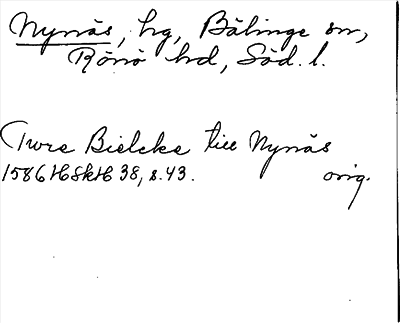 Nynäs, hg, Bälinge sn,
Rönö hd, Söd. l.
Ture Bielcke till Nynäs
1586 HSkH 38, s. 43. orig.